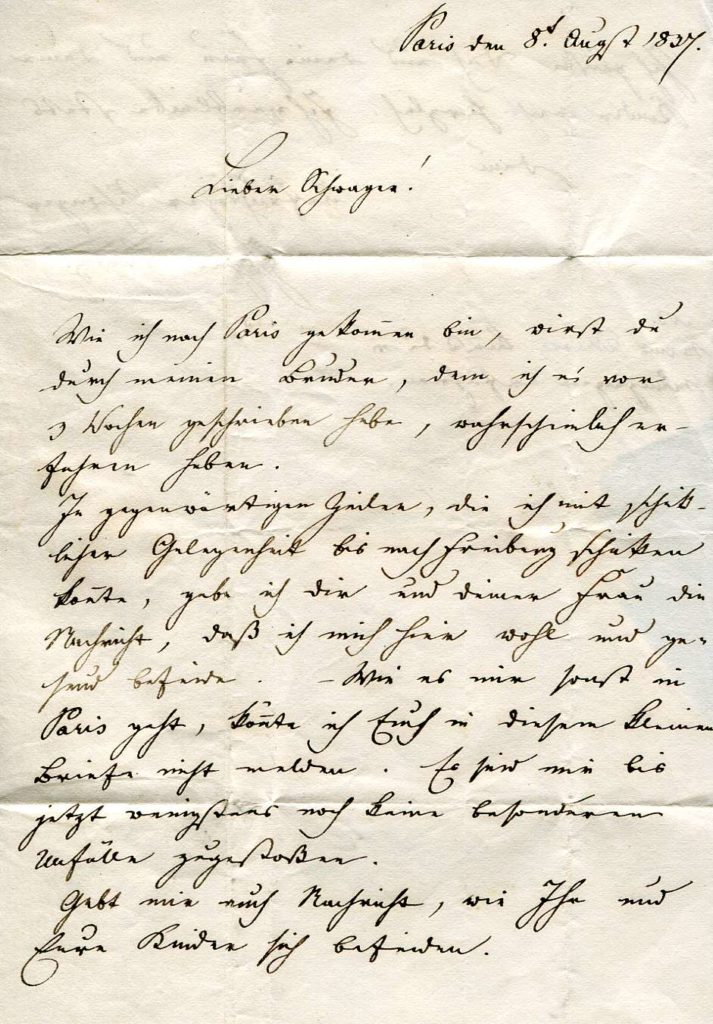 Paris den 8t Augst 1837.
Lieber Schwager!
Wie ich nach Paris gekom̄en bin, wirst du
durch meinen Bruder, dem ich es vor
3 Wochen geschrieben habe, wahrscheinlich er-
fahren haben.
In gegenwärtigen Zeilen, die ich mit schik-
licher Gelegenheit bis nach Freiburg schikken
kon̄te, gebe ich dir und deiner Frau die
Nachricht, daß ich mich hier wohl und ge-
sund befinde. – Wie es mir sonst in
Paris geht, kön̄te ich Euch in diesem kleinen
Briefe nicht melden. Es sind mir bis
jetzt wenigstens noch keine besonderen
Unfälle zugestoßen.
Gebt mir auch Nachricht, wie Ihr und
Eure Kinder sich befinden.